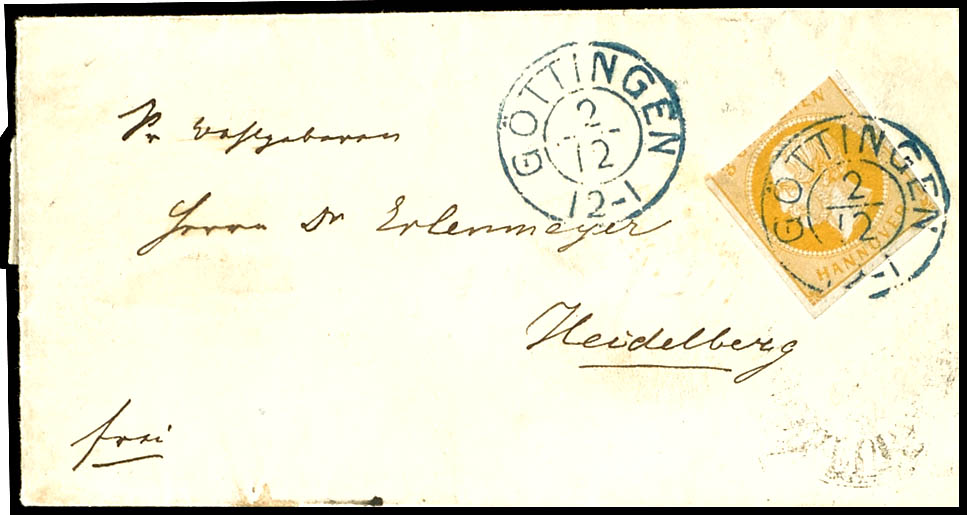 Sr Wohlgeboren
Herrn Dr Erlenmeyer
Heidelberg
frei
GÖTTINGEN
2
12
12-1
GÖTTINGEN
2
12
-1
HANNOVER